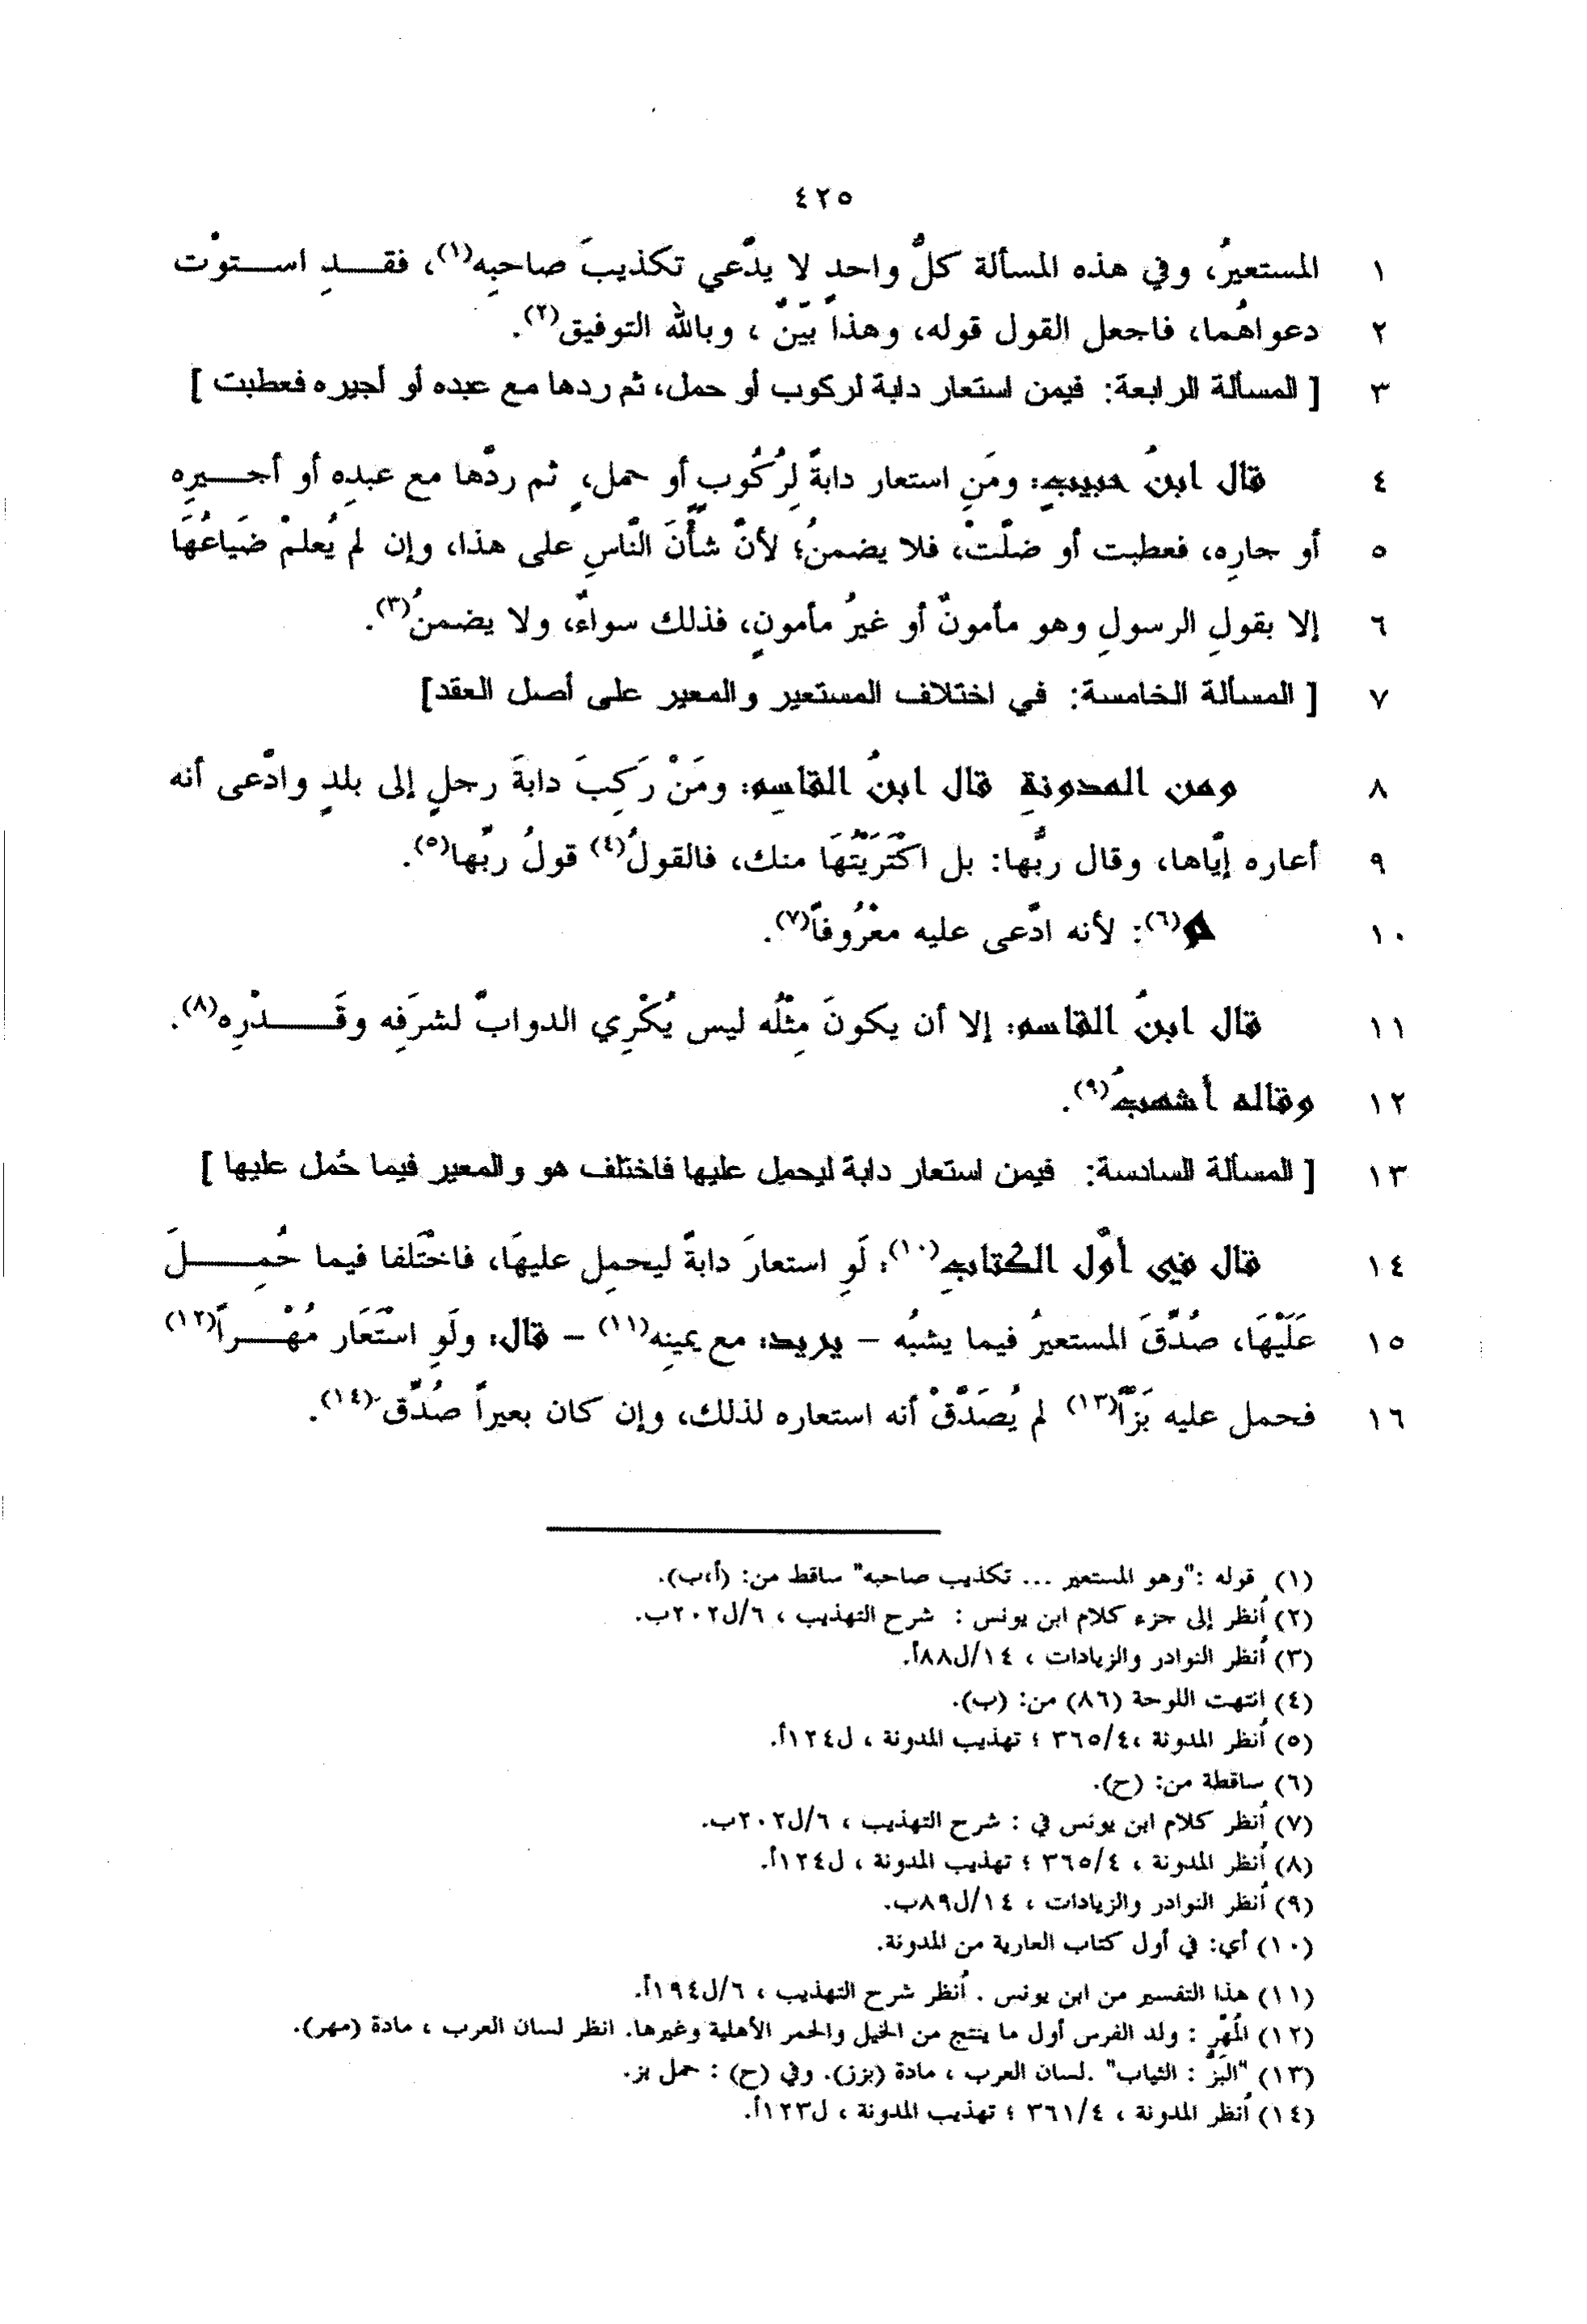 ٤٢٥
١ المستعيرُ، وفي هذه المسألة كلُّ واحدٍ لا يدَّعي تكذيبَ صاحبِه(١)، فقــدِ اســتوتْ
٢ دعواهُما، فاجعل القول قوله، وهذا بَيِّنٌ ، وبالله التوفيق(٢).
٣ [ المسألة الرابعة: فيمن استعار دابة لركوب أو حمل، ثم ردها مع عبده أو أجيره فعطبت ]
٤ قال ابنُ حبيبٍ: ومَنِ استعار دابةً لِرُكُوبٍ أو حملٍ، ثم ردَّها مع عبدِه أو أجــيرِه
٥ أو جارِه، فعطبت أو ضلَّتْ، فلا يضمنُ؛ لأنَّ شأْنَ النَّاسِ على هذا، وإن لم يُعلمْ ضَياعُهَا
٦ إلا بقولِ الرسولِ وهو مأمونٌ أو غيرُ مأمونٍ، فذلك سواءٌ، ولا يضمنُ(٣).
٧ [ المسألة الخامسة: في اختلاف المستعير والمعير على أصل العقد]
٨ ومن المدونةِ قال ابنُ القاسِمِ: ومَنْ رَكِبَ دابةَ رجلٍ إلى بلدٍ وادَّعى أنه
٩ أعاره إيَّاها، وقال ربُّها: بل اكْتَرَيْتَهَا منك، فالقولُ(٤) قولُ ربِّها(٥).
١٠ م(٦): لأنه ادَّعى عليه معْرُوفاً(٧).
١١ قال ابنُ القاسم: إلا أن يكونَ مِثْلُه ليس يُكْرِي الدوابَّ لشرَفِه وقَــدْرِه(٨).
١٢ وقاله أشهبُ(٩).
١٣ [ المسألة السادسة: فيمن استعار دابة ليحمل عليها فاختلف هو والمعير فيما حُمل عليها ]
١٤ قال في أوَّل الكتابِ(١٠): لَوِ استعارَ دابةً ليحمِل عليهَا، فاخْتَلفا فيما حُمِــلَ
١٥ عَلَيْهَا، صُدِّقَ المستعيرُ فيما يشبُه – يريد: مع يمينِه(١١) – قال: ولَوِ اسْتَعَار مُهْــراً(١٢)
١٦ فحمل عليه بَزّاً(١٣) لم يُصَدَّقْ أنه استعاره لذلك، وإن كان بعيراً صُدِّق(١٤).
(١) قوله :"وهو المستعير ... تكذيب صاحبه" ساقط من: (أ،ب).
(٢) أُنظر إلى جزء كلام ابن يونس : شرح التهذيب ، ٦/ل٢٠٢ب.
(٣) أُنظر النوادر والزيادات ، ١٤/ل٨٨أ.
(٤) انتهت اللوحة (٨٦) من: (ب).
(٥) أُنظر المدونة ،٣٦٥/٤ ؛ تهذيب المدونة ، ل١٢٤أ.
(٦) ساقطة من: (ح).
(٧) أُنظر كلام ابن يونس في : شرح التهذيب ، ٦/ل٢٠٢ب.
(٨) أُنظر المدونة ، ٣٦٥/٤ ؛ تهذيب المدونة ، ل١٢٤أ.
(٩) أُنظر النوادر والزيادات ، ١٤/ل٨٩ب.
(١٠) أي: في أول كتاب العارية من المدونة.
(١١) هذا التفسير من ابن يونس . أُنظر شرح التهذيب ، ٦/ل١٩٤أ.
(١٢) المُهْر : ولد الفرس أول ما ينتج من الخيل والحمر الأهلية وغيرها. انظر لسان العرب ، مادة (مهر).
(١٣) "البَزُّ : الثياب" .لسان العرب ، مادة (بزز). وفي (ح) : حمل بز.
(١٤) أُنظر المدونة ، ٣٦١/٤ ؛ تهذيب المدونة ، ل١٢٣أ.